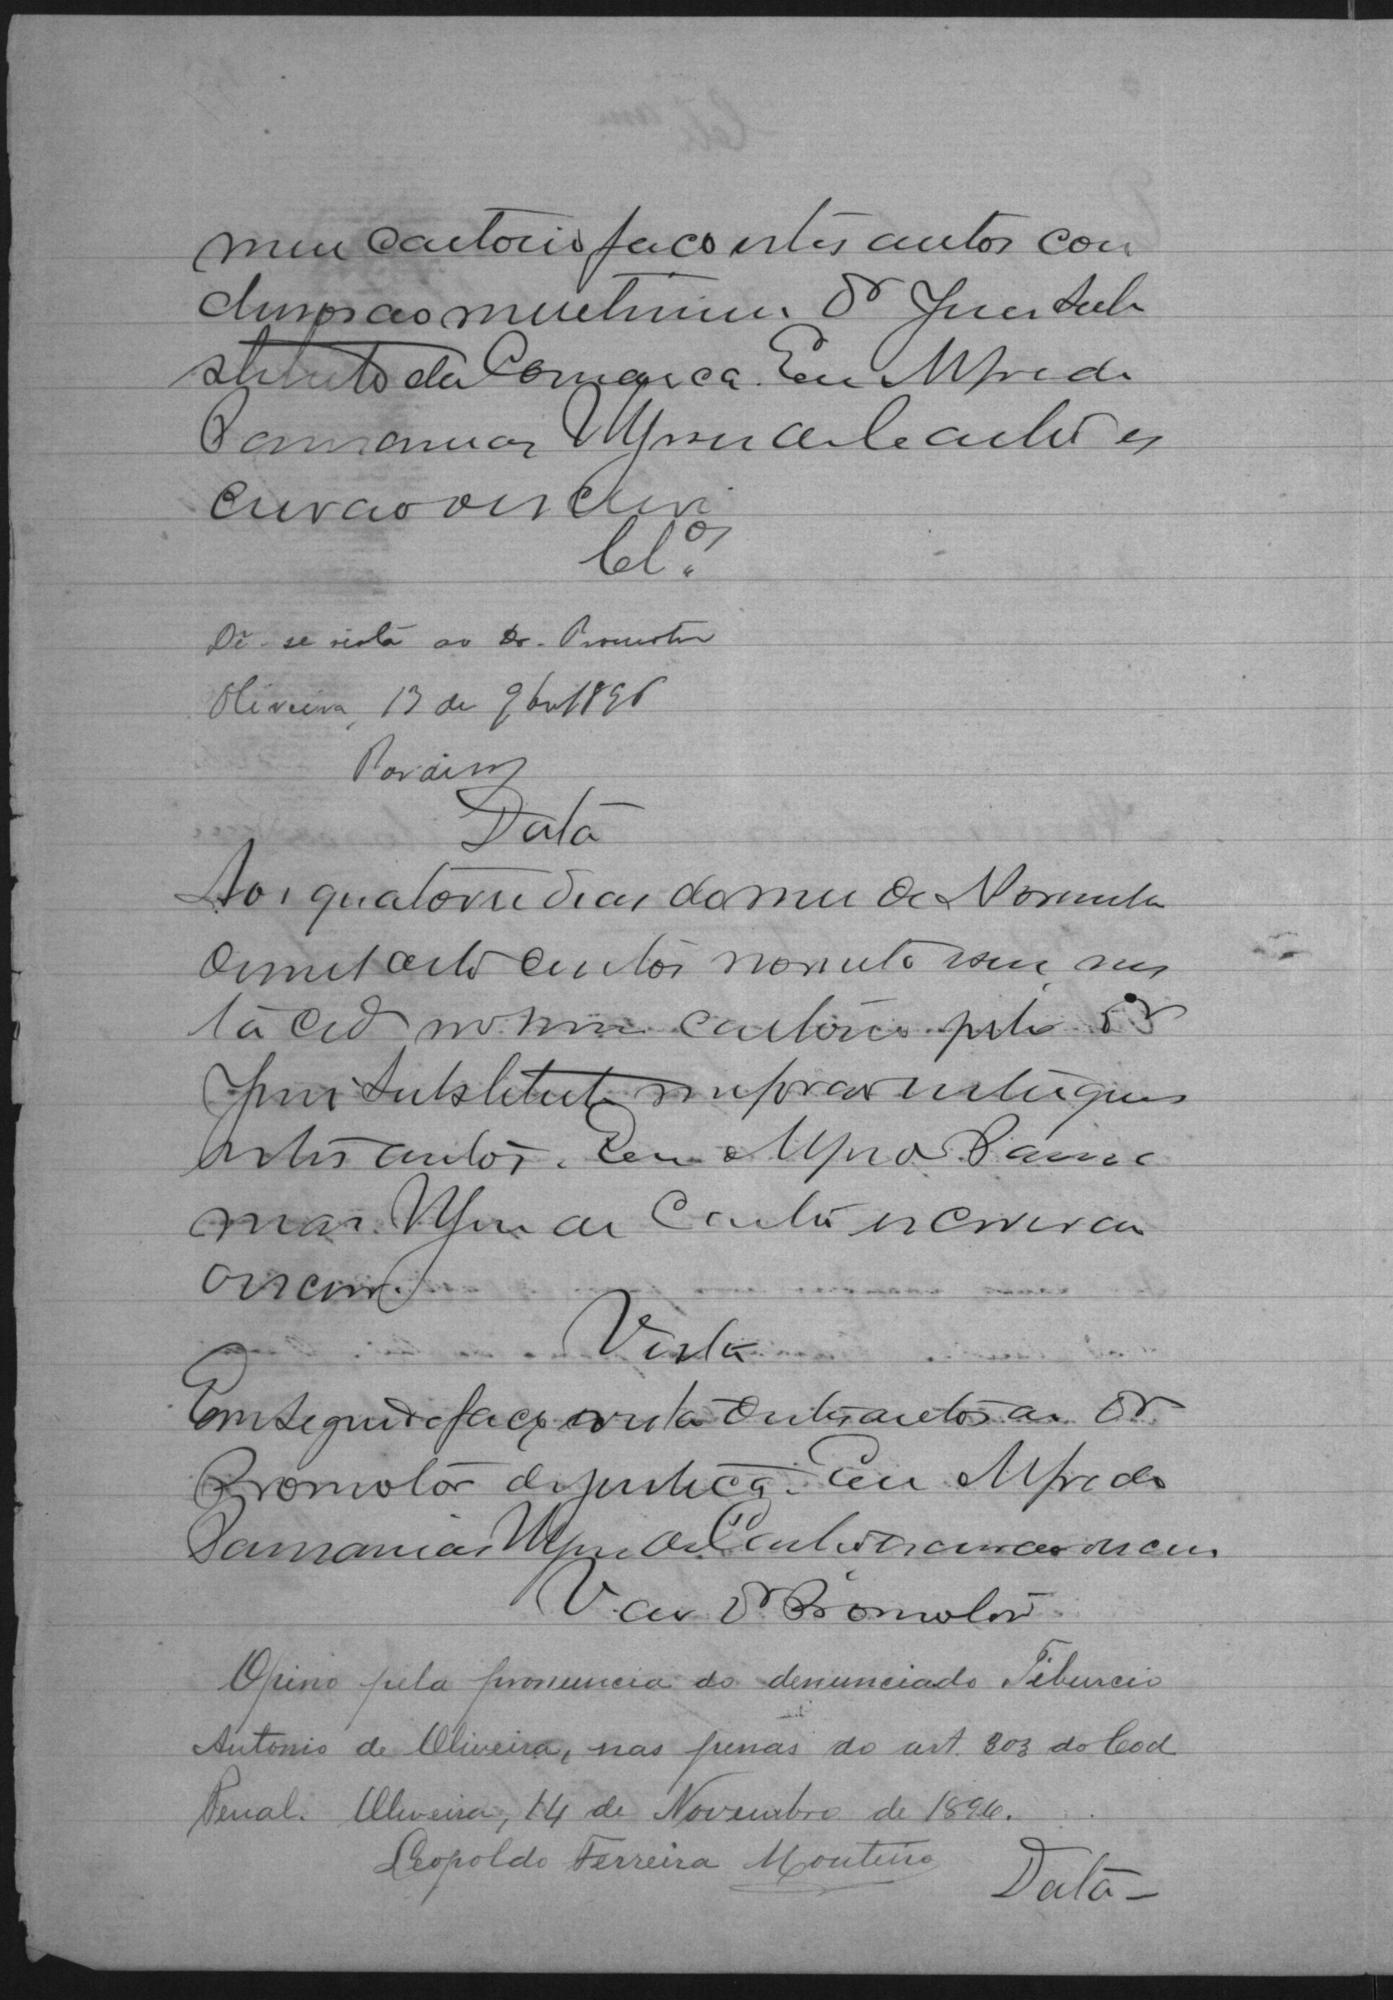 meu cartorio faço estes autos con
clusos ao meretissimo Dr Juiz Sub
stituto da Comarca. Eu Alfredo
de Castro es
crivão o escrevi
Cl.os
Dê-se vista ao Dr. Promotor
Oliveira, 13 de 9bro 1896
Data
Aos quatorze dias do mez de Novembro
de mil oito centos noventa e seis nes
ta cid no meu cartorio pelo Dr
Juiz Substituto me foram entregues
estes autos. Eu Alfredo
de Castro escrivão
o escrevi.
Vista
Em seguida faço vista destes autos ao Dr
Promotor de justiça. Eu Alfredo
de Castro escrivão o escrevi
V. ao Dr Promotor
Opino pela pronuncia do denunciado Tiburcio
Antonio de Oliveira, nas penas do art. 303 do Cod
Penal. Oliveira, 14 de Novembro de 1896.
Leopoldo Ferreira Monteiro
Data